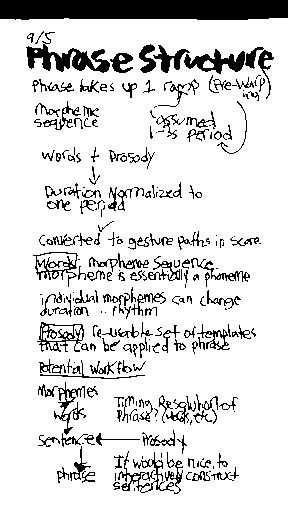 9/5
Phrase Structure
Phrase takes up 1 ramp (pre-warp
ing)
morpheme
sequence
assumed
1-1s period
words + Prosody
Duration Normalized to
one period
Converted to gesture paths in score
Words: morpheme sequence
morpheme is essentially a phoneme
individual morphemes can change
duration .. rhythm
Prosody re-usable set of templates
that can be applied to phrase
Potential workflow
Morphemes
words
Timing Resolution of
Phrase? (words, etc)
sentence
Prosody
phrase
It would be nice to
interactively construct
sentences